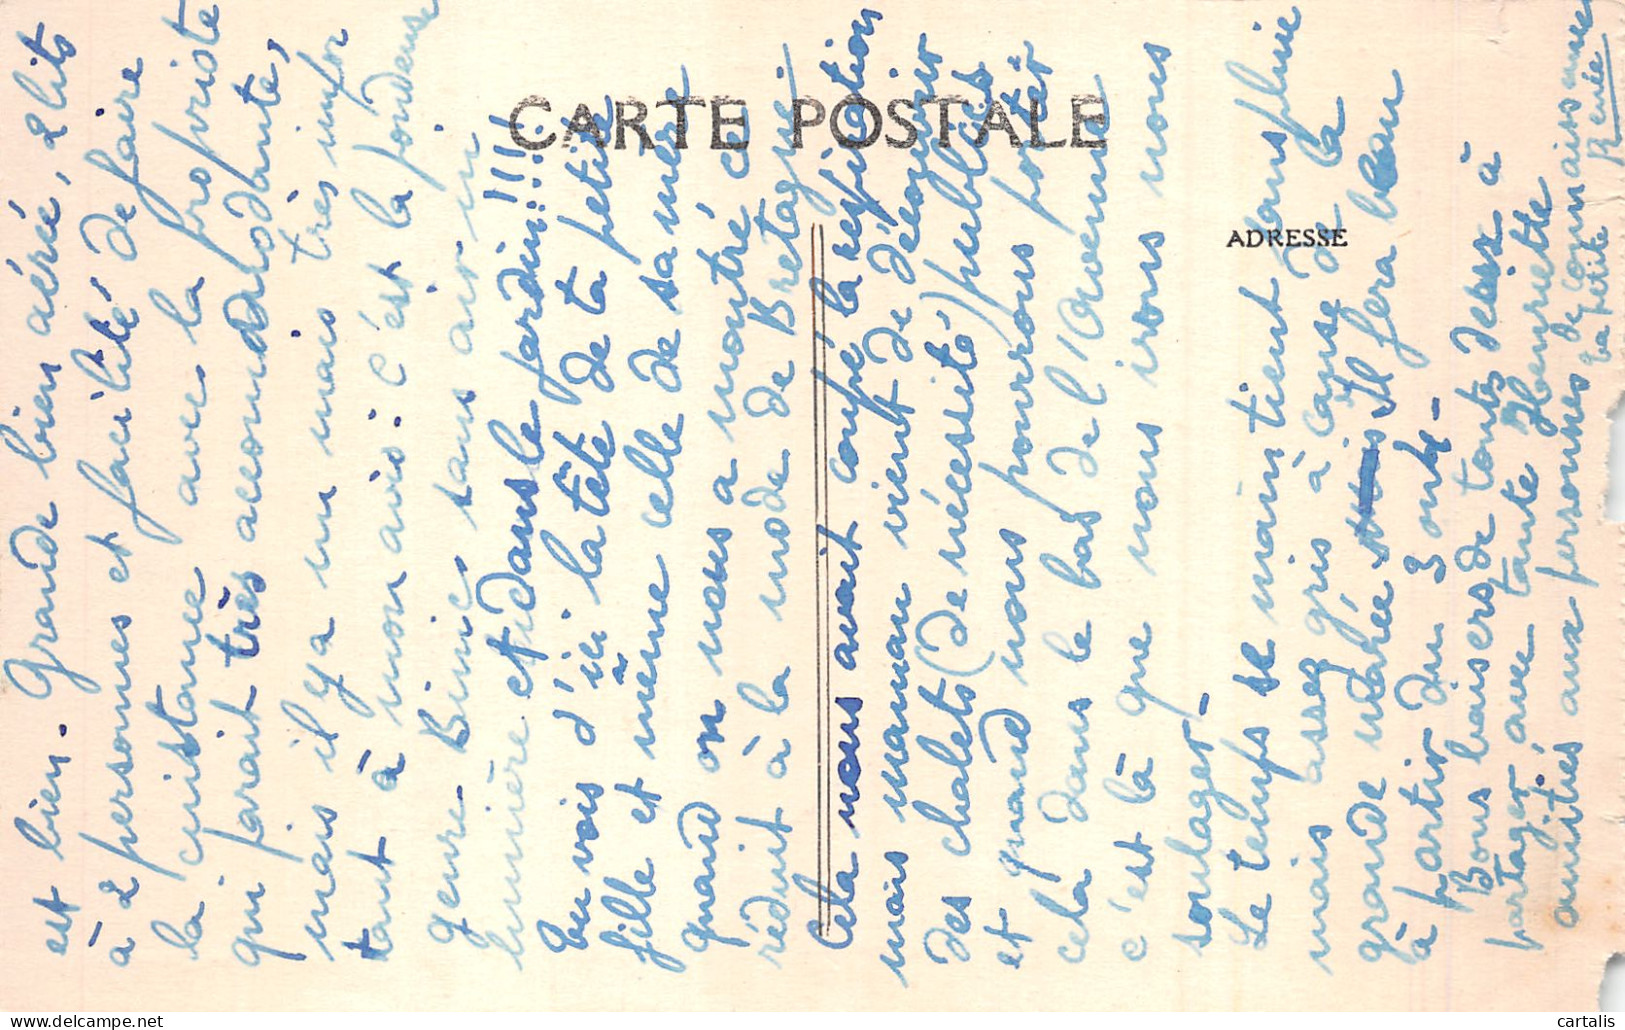 est bien. Grande bien aérée, 2 lits
à 2 personnes et facilité de faire
la cuistance avec la propriote
qui parait très accomodante,
mais il y a un mais très impor
tant à mon avis : c'est la fondeuse
genre Binic sans air ni
lumière et dans le jardin!!!!
Tu vois d'ici la tête de ta petite
fille et même celle de sa mère
quand on nous a montré ce
réduit à la mode de Bretagne
Cela nous avait coupé la respiration
mais maman vient de découvrir
des chalets (de nécessité) publics
et quand nous pourrons porter
cela dans le bas de l'Avenue
c'est là que nous irons nous
soulager.
Le temps se maintient sans pluie
mais assez gris à cause de la
grande marée Il fera beau
à partir du 3 
Bons baisers de toutes deux à
partager avec tante Henriette
amitiés aux personnes de connaissance
ta petite Renée
CARTE POSTALE
ADRESSE
cartalis